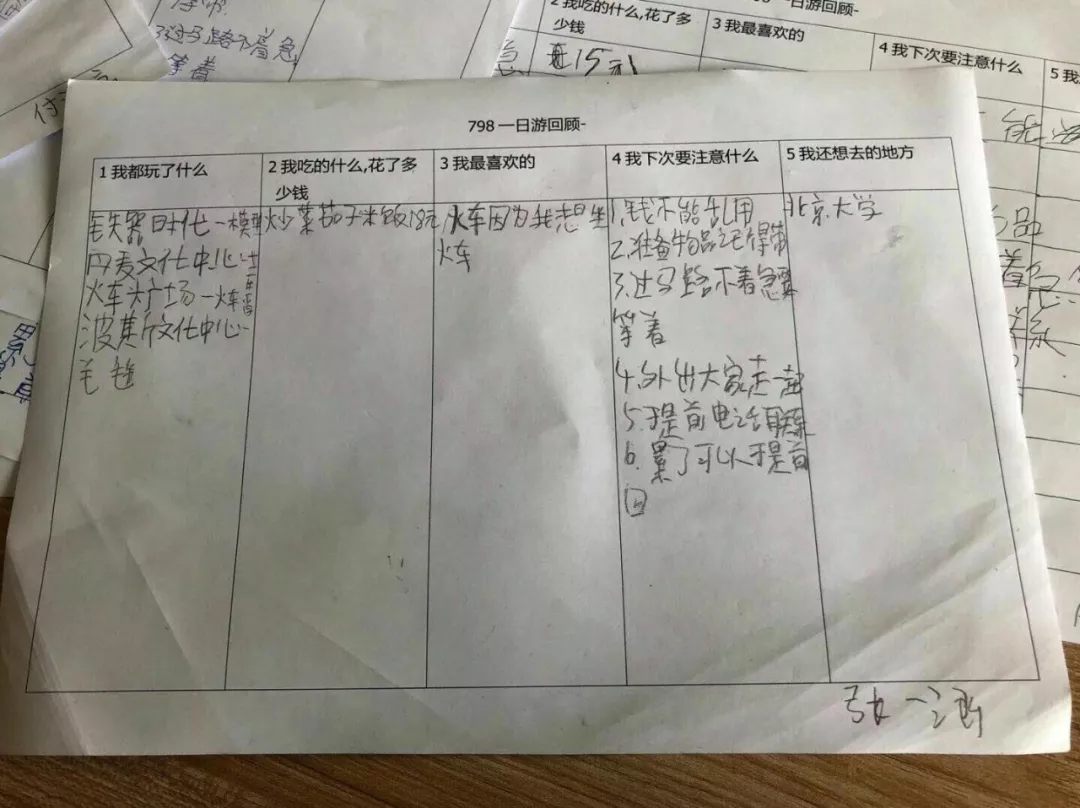 798 一日游回顾-
1 我都玩了什么
2 我吃的什么,花了多
少钱
3 我最喜欢的
4 我下次要注意什么
5 我还想去的地方
铁器时代一模型
丹麦文化中心一
火车头广场一火车
波斯文化中心一
毛毯
炒菜茄子米饭18元
火车因为我想坐
火车
1.钱不能乱用
2.准备物品记得带
3.过马路不着急要
等着
4.外出大家走一起
5.提前电话联系
6.累了可以提前
回
北京大学
张一
2 我吃的什么,花了多
少钱
15元
一日游回顾-
3 我最喜欢的
4 我下次要注意什么
过马路不着急
等着